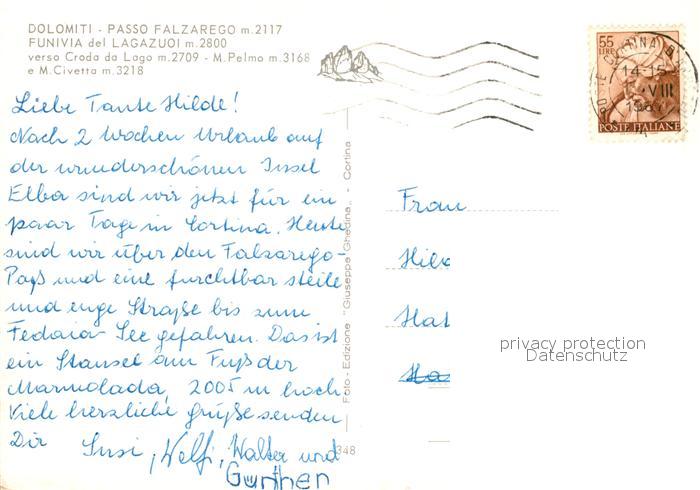 DOLOMITI - PASSO FALZAREGO m.2117
FUNIVIA del LAGAZUOI m.2800
verso Croda da Lago m.2709 - M.Pelmo m.3168
e M.Civetta m.3218
Liebe Tante Hilde!
Nach 2 Wochen Urlaub auf
der wunderschönen Insel
Elba sind wir jetzt für ein
paar Tage in Cortina. Heute
sind wir über den Falzarego-
Paß und eine furchtbar steile
und enge Straße bis zum
Fedaia-See gefahren. Das ist
ein Stausee am Fuß der
Marmolada, 2005 m hoch
Viele herzliche Grüße senden
Dir Susi, Welfi, Walter und
Günther
Foto - Edizione "Giuseppe Ghedina" - Cortina
348
55
LIRE
14-15
VIII
POSTE ITALIANE
Frau
Hil
Hat
Ha
privacy protection
Datenschutz